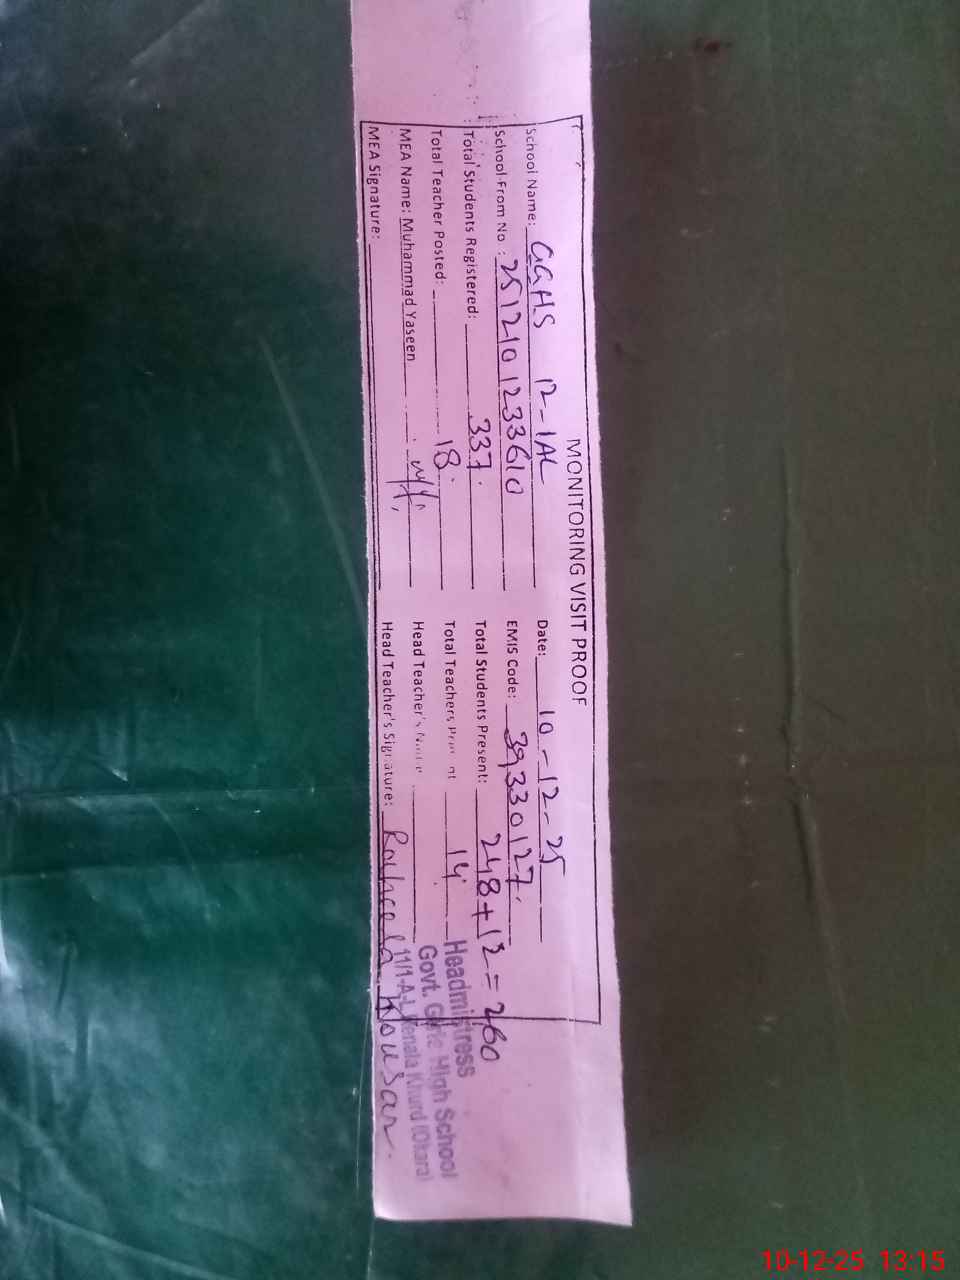 MONITORING VISIT PROOF
School Name: GGHS 12-1AL Date: 10-12-25
School From No : 2512101233610 EMIS Code: 39330127.
Total Students Registered: 337. Total Students Present: 248+12=260
Total Teacher Posted: 18. Total Teachers 14.
MEA Name: Muhammad Yaseen Head Teacher's
MEA Signature: Head Teacher's Signature: Kousar.
Headmistress
Govt. Girls High School
11/1-A-L Renala Khurd (Okara)
10-12-25 13:15